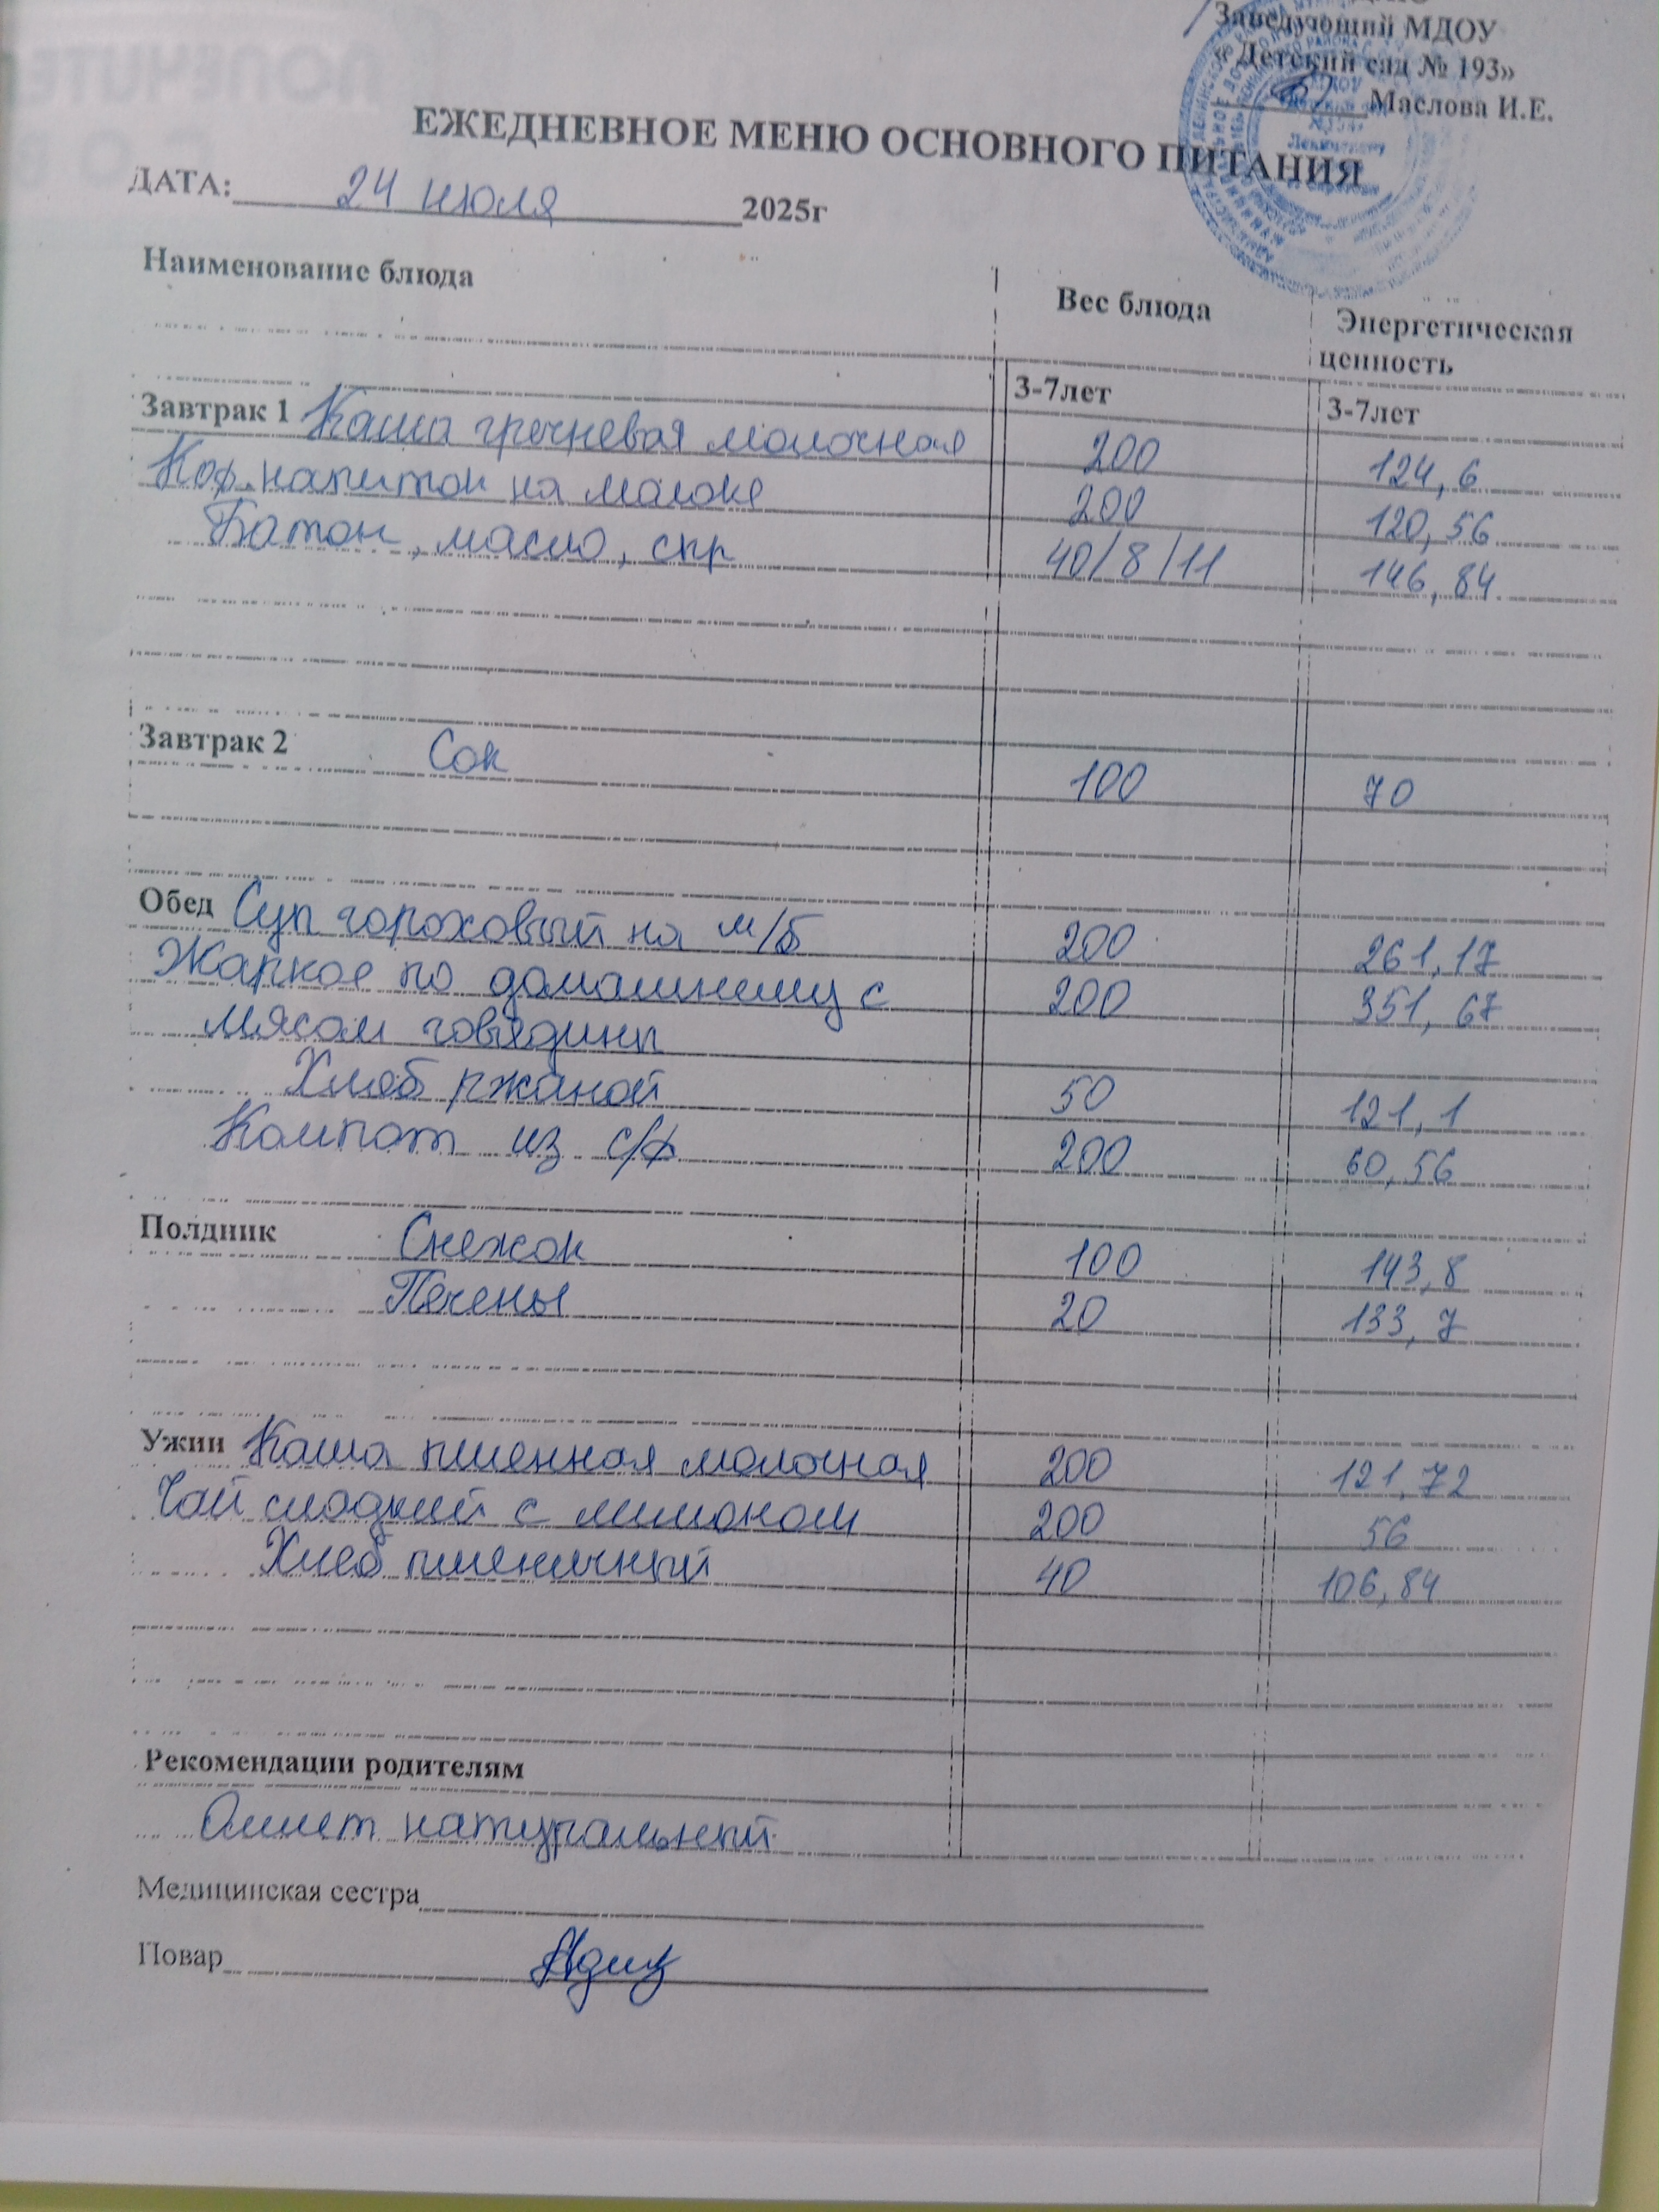 Заведующий МДОУ
« Детский сад № 193»
Маслова И.Е.
ЕЖЕДНЕВНОЕ МЕНЮ ОСНОВНОГО ПИТАНИЯ
ДАТА: 24 июля 2025г
Наименование блюда Вес блюда Энергетическая ценность
3-7лет 3-7лет
Завтрак 1 Каша гречневая молочная 200 124,6
Коф.напиток на молоке 200 120,56
Батон, масло, сыр 40/8/11 146,84
Завтрак 2 Сок 100 70
Обед Суп гороховый на м/б 200 261,17
Жаркое по домашнему с 200 351,67
мясом говядины
Хлеб ржаной 50 121,1
Компот из с/ф 200 60,56
Полдник Снежок 100 143,8
Печенье 20 133,7
Ужин Каша пшенная молочная 200 121,72
Чай сладкий с лимоном 200 56
Хлеб пшеничный 40 106,84
Рекомендации родителям
Омлет натуральный
Медицинская сестра
Повар